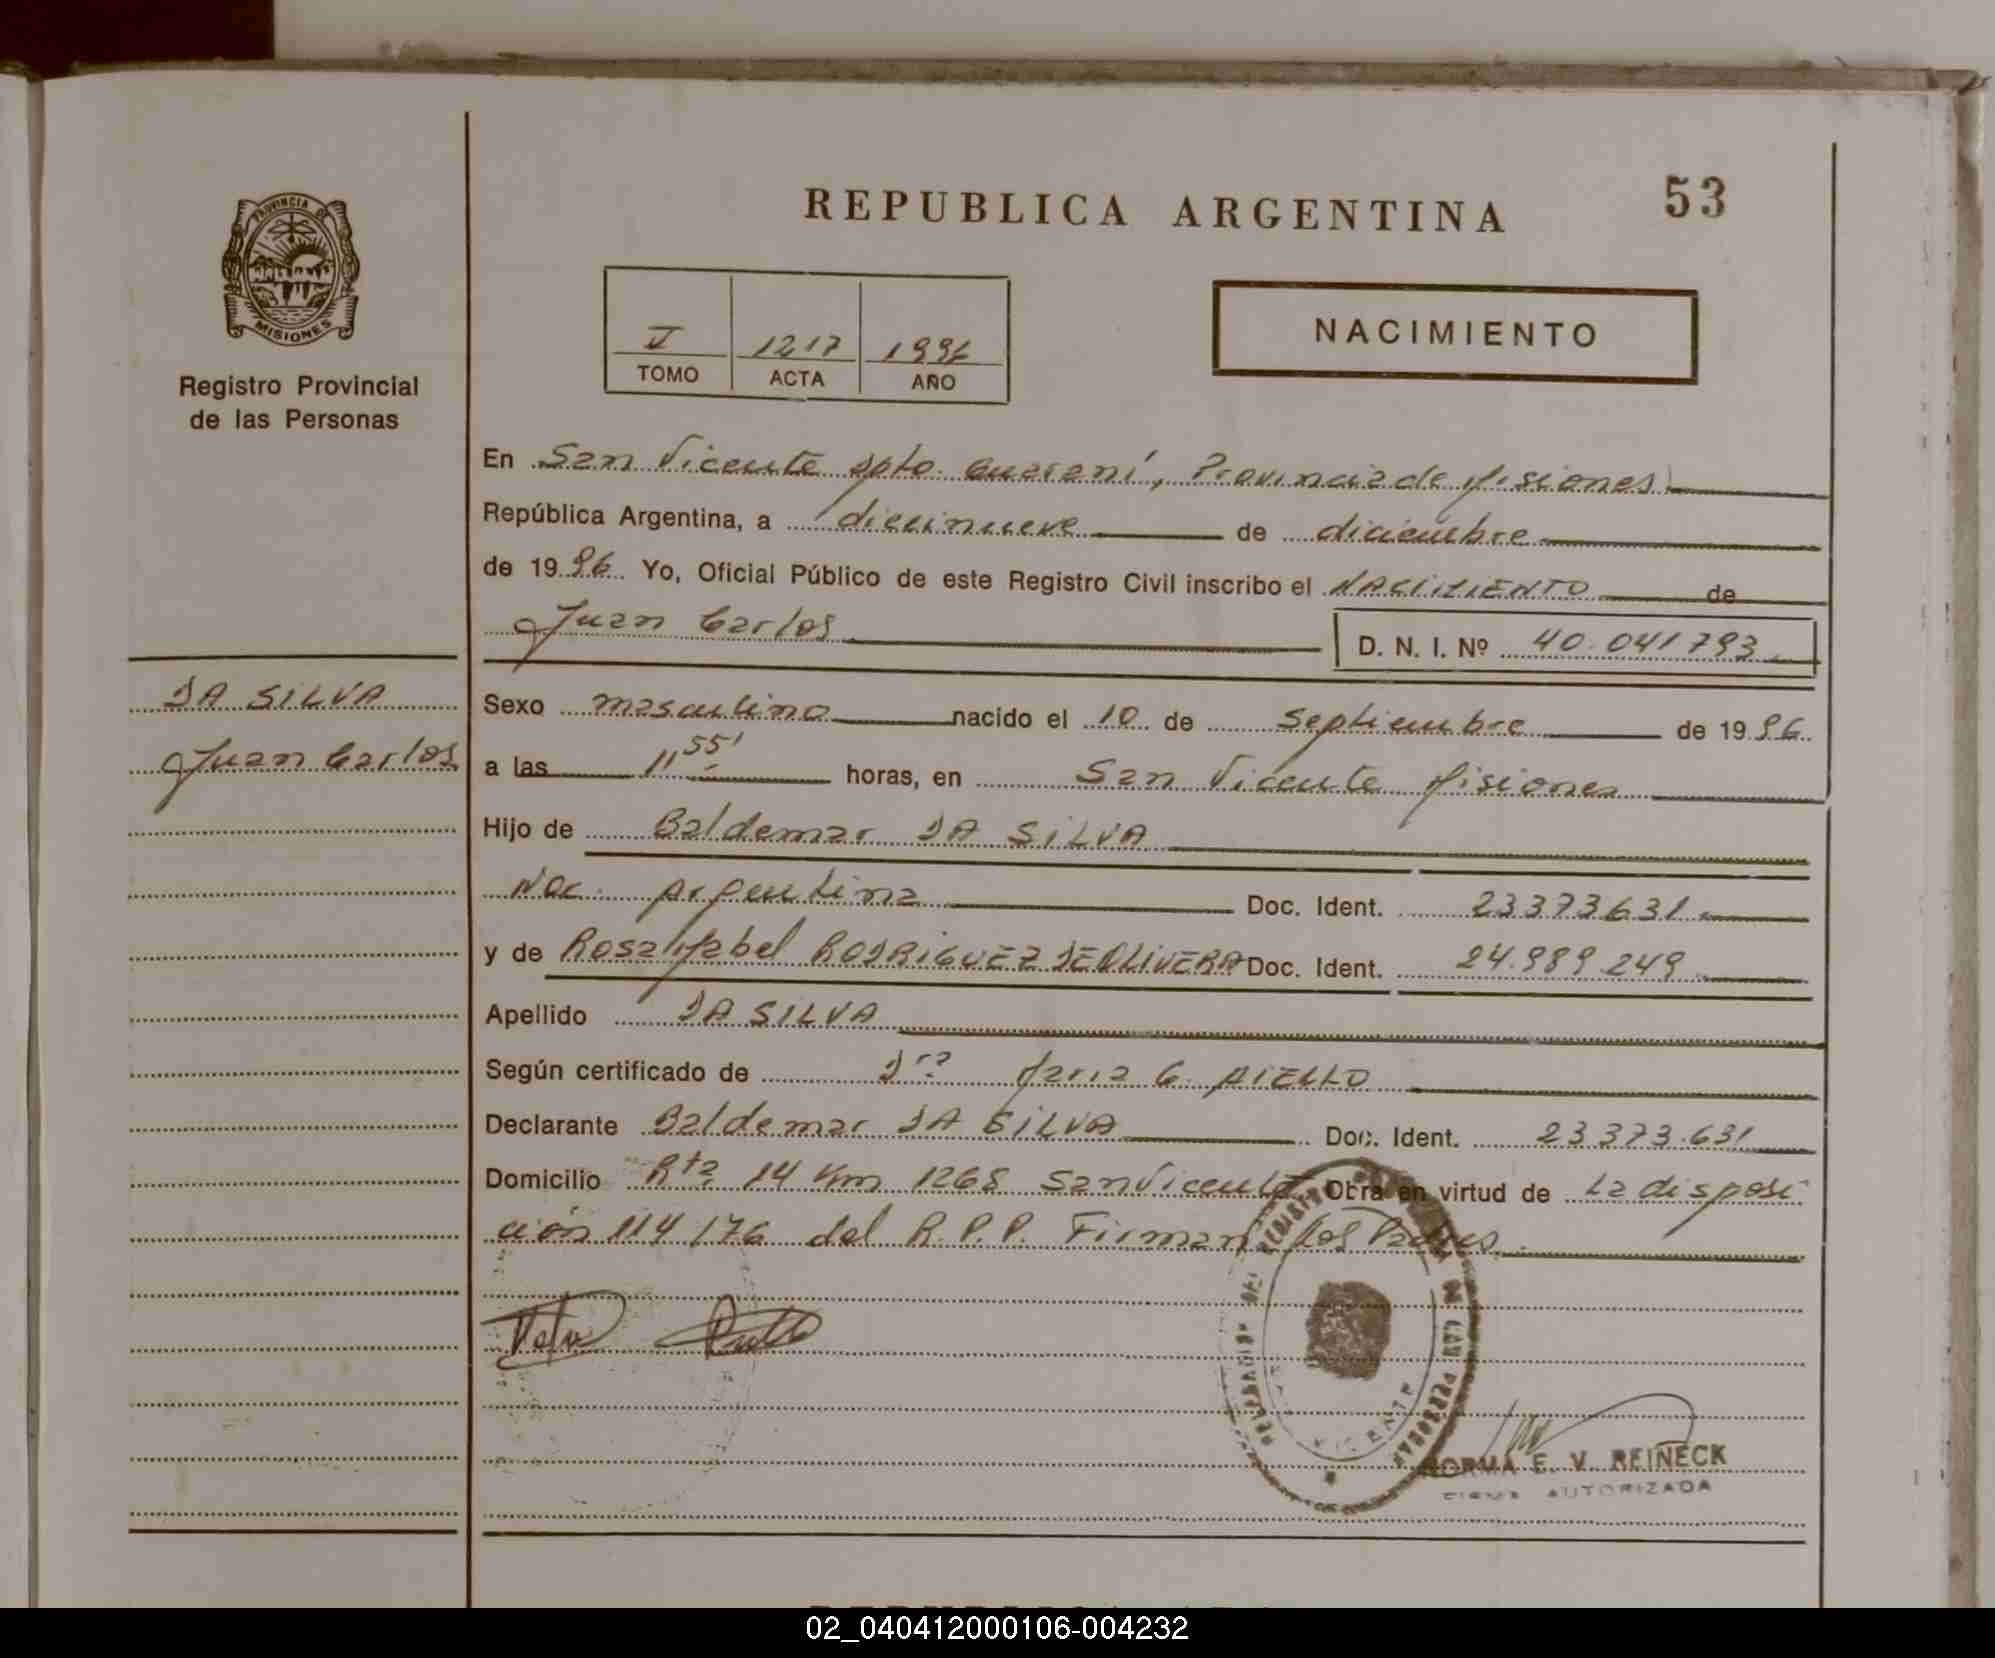 REPUBLICA ARGENTINA
53
PROVINCIA DE
MISIONES
Registro Provincial
de las Personas
1217 1996
TOMO ACTA AÑO
NACIMIENTO
En San Vicente Dpto. Guaraní, Provincia de Misiones
República Argentina, a diecinueve de diciembre
de 1996 Yo, Oficial Público de este Registro Civil inscribo el NACIMIENTO de
Juan Carlos D. N. I. Nº 40.041793
DA SILVA
Juan Carlos
Sexo masculino nacido el 10 de Septiembre de 1996
a las 11 55' horas, en San Vicente Misiones
Hijo de Baldemar DA SILVA
Nac. Argentina Doc. Ident. 23373631
y de Rosa Mabel RODRIGUEZ DE OLIVERA Doc. Ident. 24.989.249
Apellido DA SILVA
Según certificado de Dra Maria G. AIELLO
Declarante Baldemar DA SILVA Doc. Ident. 23373.631
Domicilio Rta 14 Km 1268 San Vicente Obra en virtud de La disposi
ción 114/76 del R.P.P. Firman los Padres
DEL REGISTRO
DE LAS PERSONAS
VICENTE
NORMA E. V. REINECK
FIRMA AUTORIZADA
02_040412000106-004232